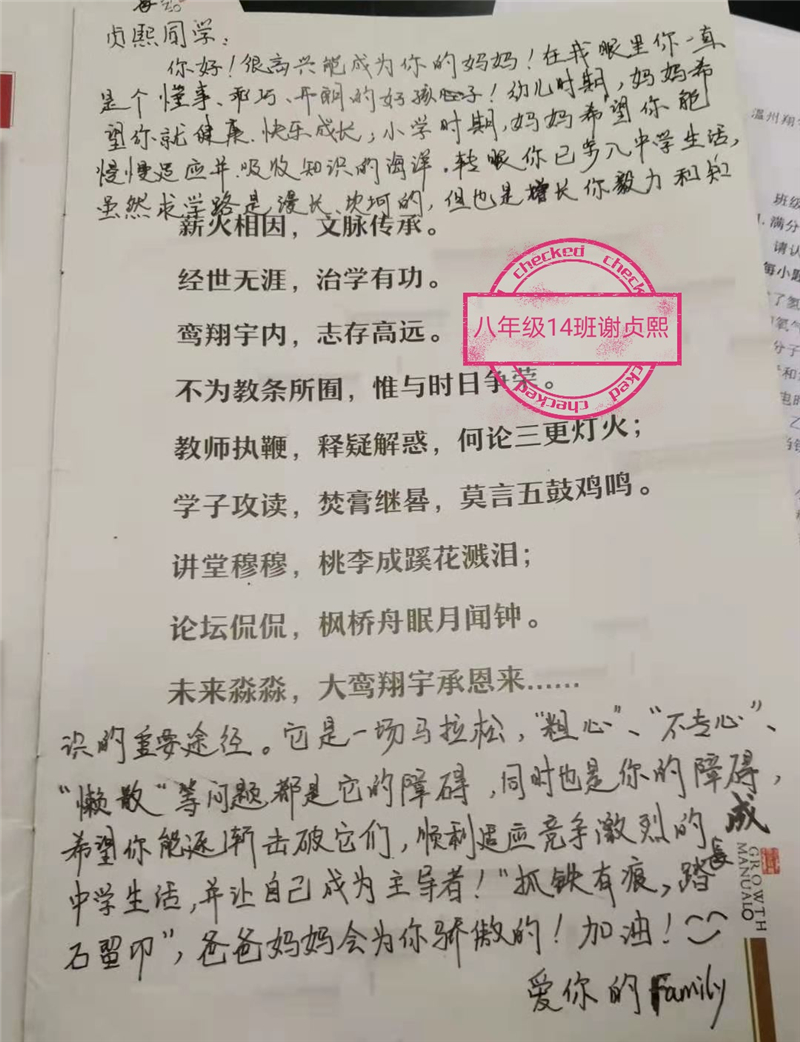 贞熙同学：
你好！很高兴能成为你的妈妈！在我眼里你一直
是个懂事、乖巧、开朗的好孩子！幼儿时期，妈妈希
望你就健康、快乐成长，小学时期，妈妈希望你能
慢慢适应并吸收知识的海洋，转眼你已步入中学生活，
虽然求学路是漫长、坎坷的，但也是增长你毅力和知
薪火相因，文脉传承。
经世无涯，治学有功。
鸾翔宇内，志存高远。
不为教条所囿，惟与时日争荣。
教师执鞭，释疑解惑，何论三更灯火；
学子攻读，焚膏继晷，莫言五鼓鸡鸣。
讲堂穆穆，桃李成蹊花溅泪；
论坛侃侃，枫桥舟眠月闻钟。
未来淼淼，大鸾翔宇承恩来……
识的重要途径。它是一场马拉松，“粗心”、“不专心”、
“懒散”等问题都是它的障碍，同时也是你的障碍，
希望你能逐渐击破它们，顺利适应竞争激烈的
中学生活，并让自己成为主导者！“抓铁有痕，踏
石留印”，爸爸妈妈会为你骄傲的！加油！
爱你的Family
checked checked
八年级14班谢贞熙
checked checked
成长
GROWTH
MANUAL
温州翔
班级
1. 满分
请认
每小题